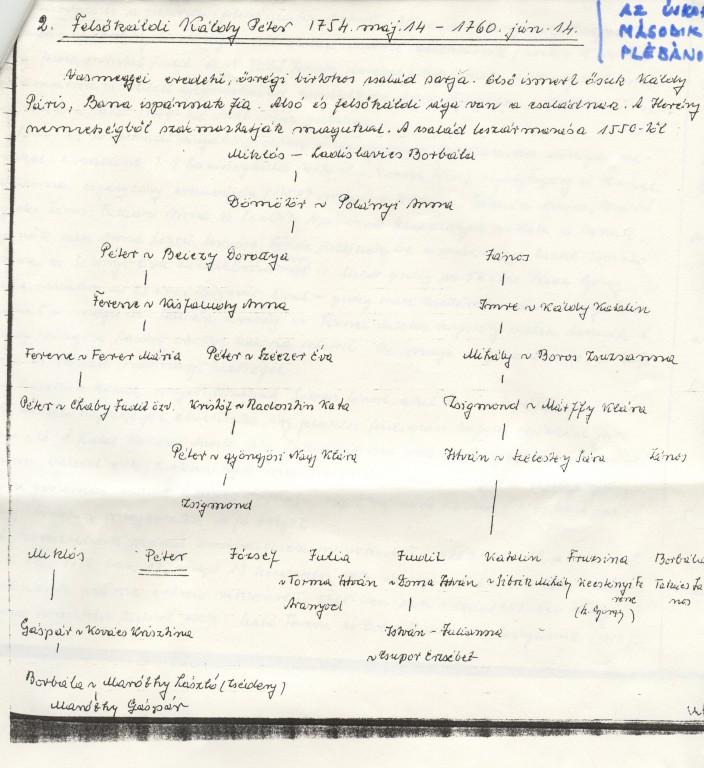 2. Felsőkáldi Káldy Péter 1754. máj. 14 - 1760. jún. 14.
AZ ÚJKOR
MÁSODIK
PLÉBÁNO
Vasmegyei eredetű, ősrégi birtokos család sarja. Első ismert ősük Káldy
Páris, Bana ispánnak fia. Alsó és felsőkáldi ága van a családnak. A Herény
nemzetségből származtatják magukat. A család leszármazása 1550-től:
Miklós - Ladislavics Borbála
Dömötör ~ Polányi Anna
Péter ~ Beiczy Dorottya János
Ferenc ~ Kisfaludy Anna Imre ~ Káldy Katalin
Ferenc ~ Ferer Mária Péter ~ Szeczer Éva Mihály ~ Boros Zsuzsanna
Péter ~ Chaby Judit özv. Kristóf ~ Kata Zsigmond ~ Klára
Péter ~ gyöngyösi Nagy Klára István ~ Szelestey Sára János
Zsigmond
Miklós Péter József Julia Judit Katalin Fruzsina Borbála
~ Torma István ~ Doma István ~ Sitrik Mihály Kecskinyi Fe Takács Já
Aranyod renc nos
(k. György)
Gáspár ~ Kovács Krisztina István - Julianna
~ Csupor Erzsébet
Borbála ~ Maróthy László
Maróthy Gáspár